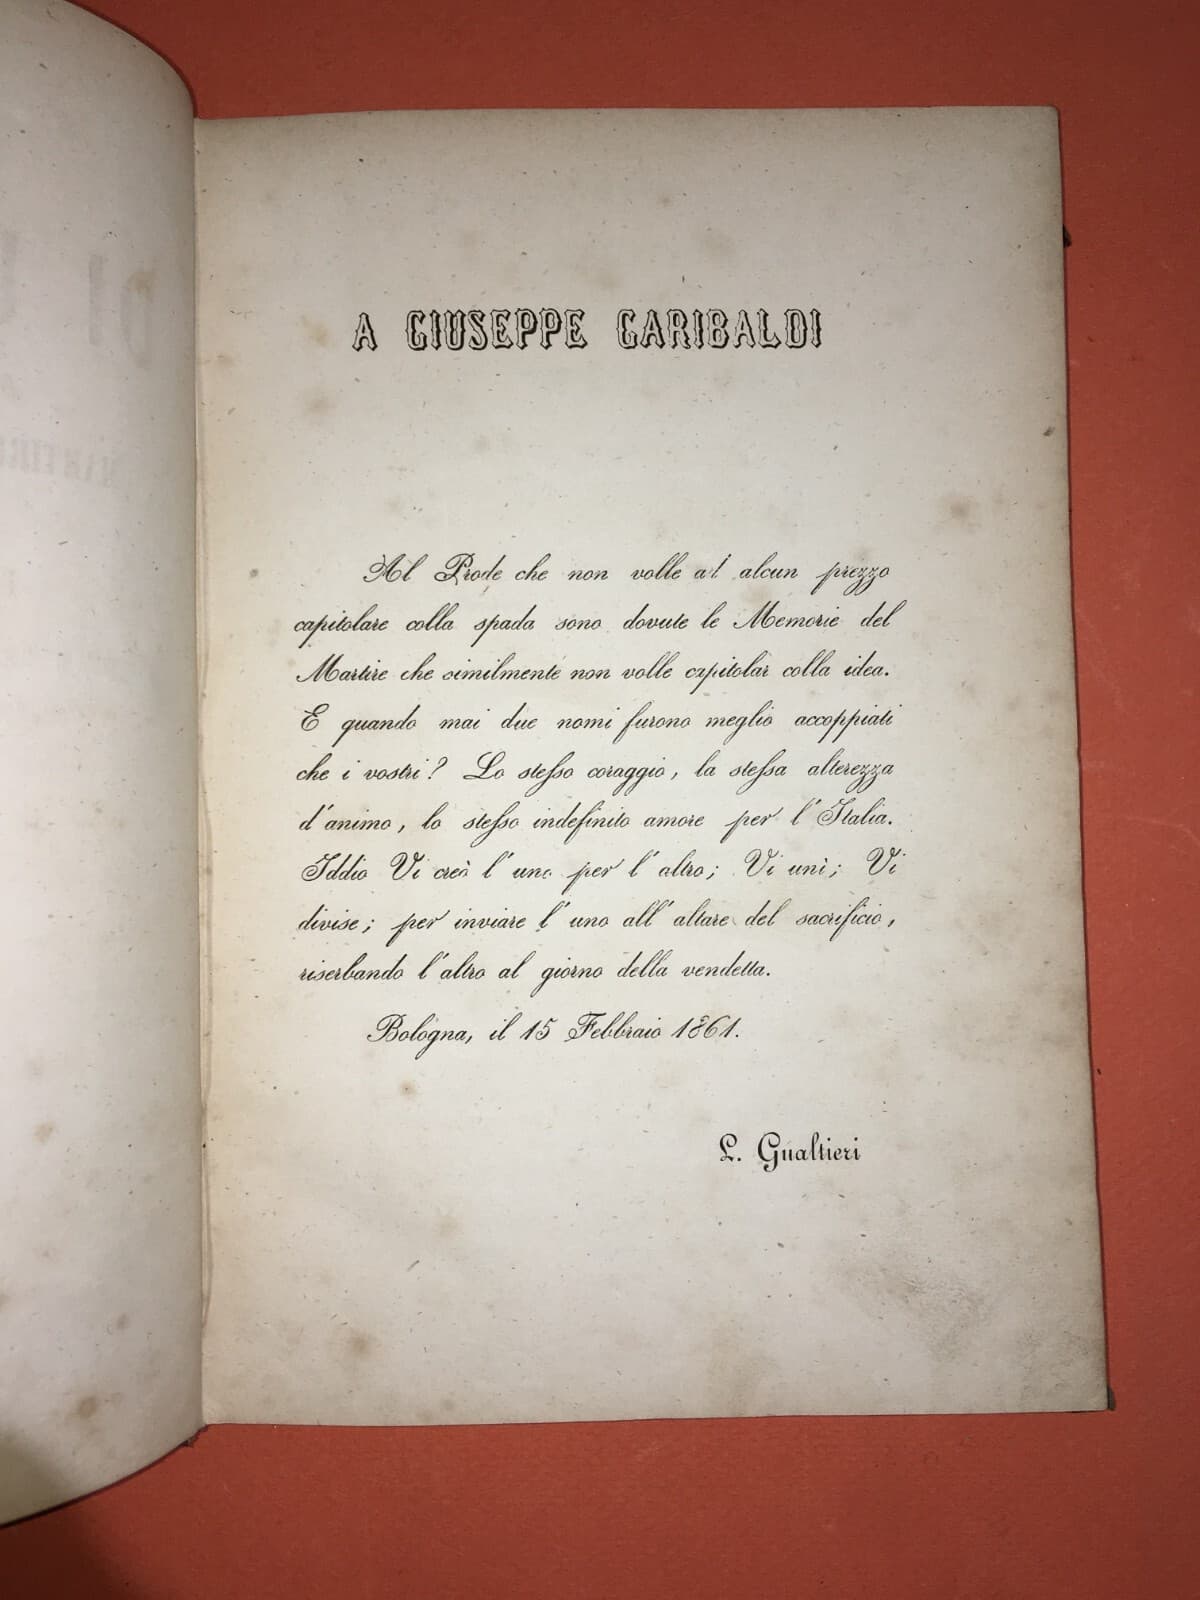 A GIUSEPPE GARIBALDI
Al Prode che non volle ad alcun prezzo
capitolare colla spada sono dovute le Memorie del
Martire che similmente non volle capitolar colla idea.
E quando mai due nomi furono meglio accoppiati
che i vostri? Lo stesso coraggio, la stessa alterezza
d'animo, lo stesso indefinito amore per l'Italia.
Iddio Vi creò l'uno per l'altro; Vi unì; Vi
divise; per inviare l'uno all'altare del sacrificio,
riserbando l'altro al giorno della vendetta.
Bologna, il 15 Febbraio 1861.
L. Gualtieri